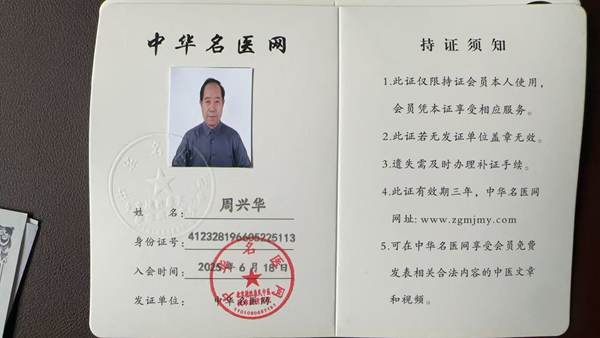 中华名医网
姓名：周兴华
身份证号：412328196605225113
入会时间：2025年6月18日
发证单位：中华名医网
持证须知
1.此证仅限持证会员本人使用，
会员凭本证享受相应服务。
2.此证若无发证单位盖章无效。
3.遗失需及时办理补证手续。
4.此证有效期三年，中华名医网
网址：www.zgmjmy.com
5.可在中华名医网享受会员免费
发表相关合法内容的中医文章
和视频。